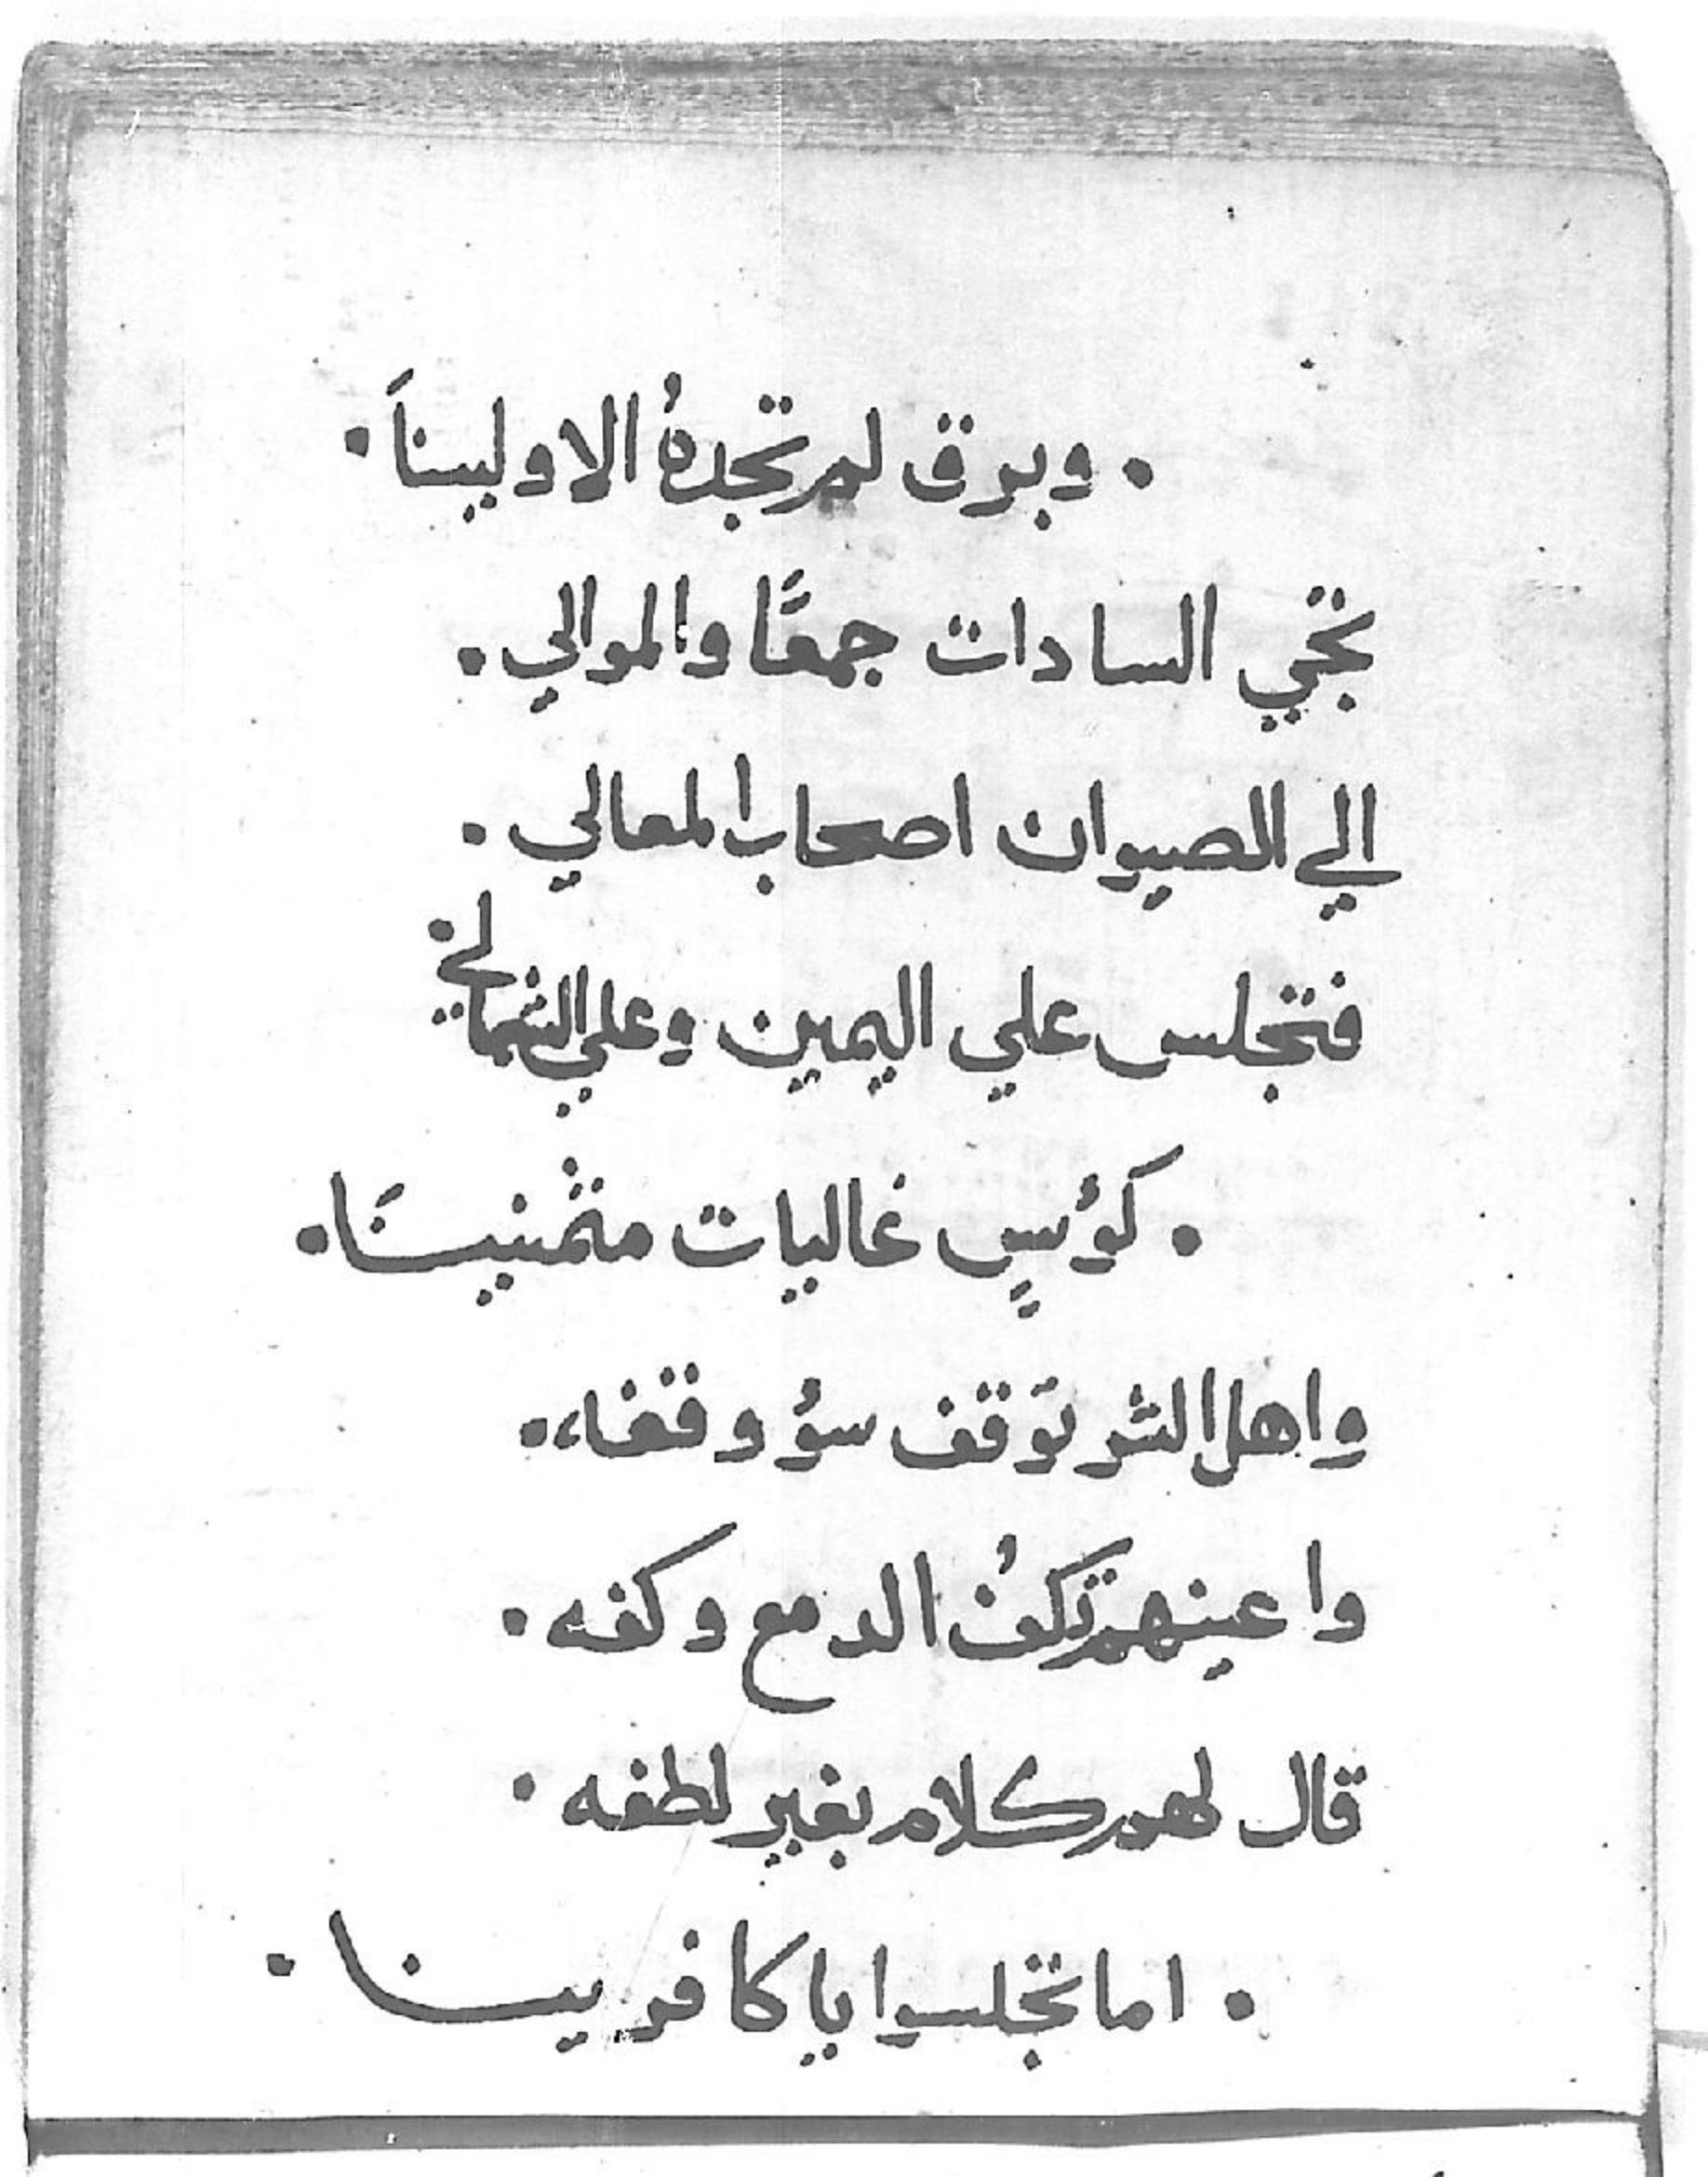 . وبرق لم تجدهُ الاوليناَ .
تجي السادات جمعًا والموالي .
الي الصيوان اصحاب المعالي .
فتجلس علي اليمين وعلي الشمالي
. كؤسٍ غاليات متمنينَا .
واهل الشر توَقف سؤ وقفه .
واعينهم تكفُ الدمع وكفه .
قال لهم كلام بغير لطفه .
. اما تجلسوا يا كافرينا .